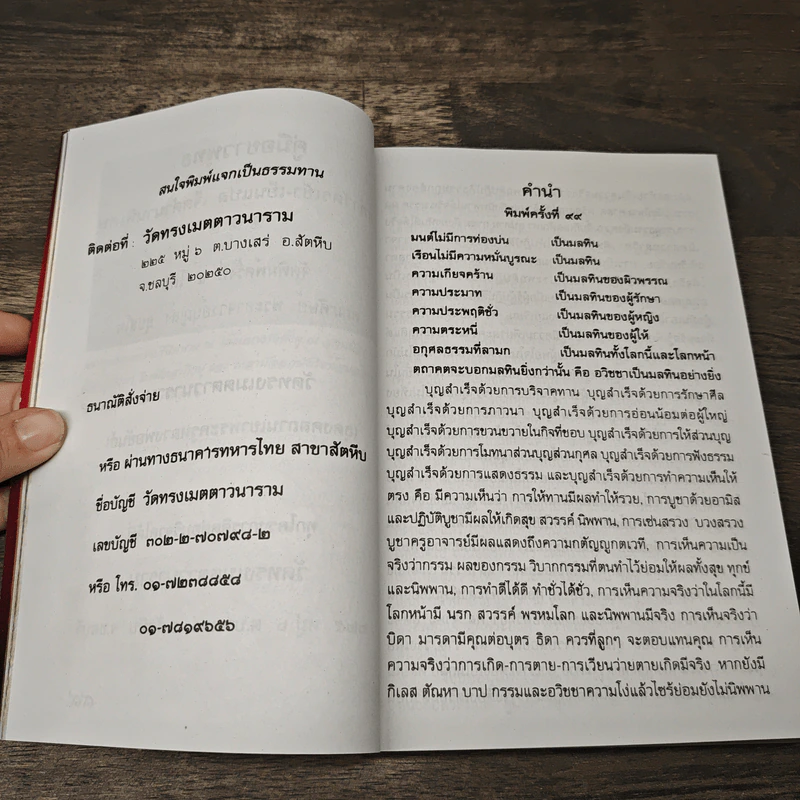 สนใจพิมพ์แจกเป็นธรรมทาน
ติดต่อที่ : วัดทรงเมตตาวนาราม
๒๒๕ หมู่ ๖ ต.บางเสร่ อ.สัตหีบ
จ.ชลบุรี ๒๐๒๕๐
ธนาณัติสั่งจ่าย
หรือ ผ่านทางธนาคารทหารไทย สาขาสัตหีบ
ชื่อบัญชี วัดทรงเมตตาวนาราม
เลขบัญชี ๓๐๒-๒-๗๐๗๙๘-๒
หรือ โทร. ๐๑-๗๒๓๘๘๕๘
๐๑-๗๘๑๙๖๕๖
คำนำ
พิมพ์ครั้งที่ ๙๙
มนต์ไม่มีการท่องบ่น เป็นมลทิน
เรือนไม่มีความหมั่นบูรณะ เป็นมลทิน
ความเกียจคร้าน เป็นมลทินของผิวพรรณ
ความประมาท เป็นมลทินของผู้รักษา
ความประพฤติชั่ว เป็นมลทินของผู้หญิง
ความตระหนี่ เป็นมลทินของผู้ให้
อกุศลธรรมที่ลามก เป็นมลทินทั้งโลกนี้และโลกหน้า
ตถาคตจะบอกมลทินยิ่งกว่านั้น คือ อวิชชาเป็นมลทินอย่างยิ่ง
บุญสำเร็จด้วยการบริจาคทาน บุญสำเร็จด้วยการรักษาศีล
บุญสำเร็จด้วยการภาวนา บุญสำเร็จด้วยการอ่อนน้อมต่อผู้ใหญ่
บุญสำเร็จด้วยการขวนขวายในกิจที่ชอบ บุญสำเร็จด้วยการให้ส่วนบุญ
บุญสำเร็จด้วยการโมทนาส่วนบุญส่วนกุศล บุญสำเร็จด้วยการฟังธรรม
บุญสำเร็จด้วยการแสดงธรรม และบุญสำเร็จด้วยการทำความเห็นให้
ตรง คือ มีความเห็นว่า การให้ทานมีผลทำให้รวย, การบูชาด้วยอามิส
และปฏิบัติบูชามีผลให้เกิดสุข สวรรค์ นิพพาน, การเซ่นสรวง บวงสรวง
บูชาครูอาจารย์มีผลแสดงถึงความกตัญญูกตเวที, การเห็นความเป็น
จริงว่ากรรม ผลของกรรม วิบากกรรมที่ตนทำไว้ย่อมให้ผลทั้งสุข ทุกข์
และนิพพาน, การทำดีได้ดี ทำชั่วได้ชั่ว, การเห็นความจริงว่าในโลกนี้มี
โลกหน้ามี นรก สวรรค์ พรหมโลก และนิพพานมีจริง การเห็นจริงว่า
บิดา มารดามีคุณต่อบุตร ธิดา ควรที่ลูกๆ จะตอบแทนคุณ การเห็น
ความจริงว่าการเกิด-การตาย-การเวียนว่ายตายเกิดมีจริง หากยังมี
กิเลส ตัณหา บาป กรรมและอวิชชาความโง่แล้วไซร้ย่อมยังไม่นิพพาน